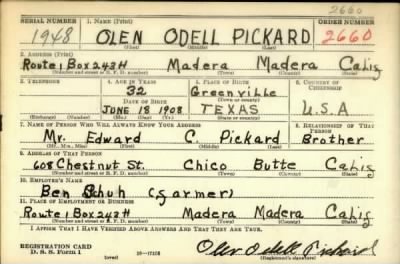 2660
SERIAL NUMBER 1. NAME (Print) ORDER NUMBER
1948 OLEN ODELL PICKARD 2660
(First) (Middle) (Last)
2. ADDRESS (Print)
Route 1 Box 243H Madera Madera Calif
(Number and street or R. F. D. number) (Town) (County) (State)
3. TELEPHONE 4. AGE IN YEARS 5. PLACE OF BIRTH 6. COUNTRY OF CITIZENSHIP
32 Greenville
DATE OF BIRTH (Town or county)
JUNE 18 1908 TEXAS U.S.A
(Exchange) (Number) (Mo.) (Day) (Yr.) (State or country)
7. NAME OF PERSON WHO WILL ALWAYS KNOW YOUR ADDRESS 8. RELATIONSHIP OF THAT PERSON
Mr. Edward C. Pickard Brother
(Mr., Mrs., Miss) (First) (Middle) (Last)
9. ADDRESS OF THAT PERSON
608 Chestnut St. Chico Butte Calif
(Number and street or R. F. D. number) (Town) (County) (State)
10. EMPLOYER'S NAME
Ben Schuh (farmer)
11. PLACE OF EMPLOYMENT OR BUSINESS
Route 1 Box 242H Madera Madera Calif
(Number and street or R. F. D. number) (Town) (County) (State)
I AFFIRM THAT I HAVE VERIFIED ABOVE ANSWERS AND THAT THEY ARE TRUE.
REGISTRATION CARD
D. S. S. Form 1 (over) Olen Odell Pickard
(Registrant's signature)